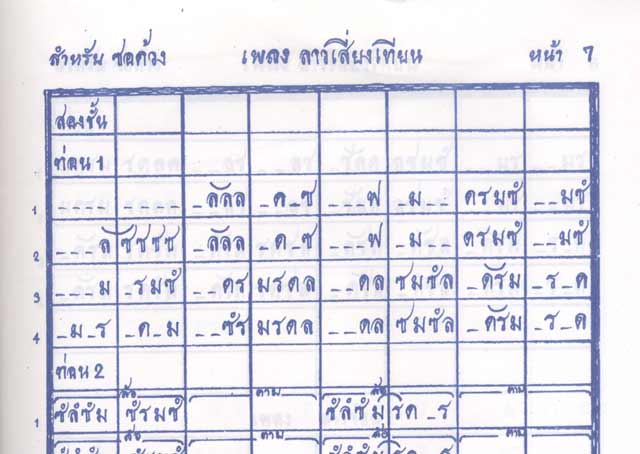 สำหรับ ซอด้วง เพลง ลาวเสี่ยงเทียน หน้า 7
สองชั้น
ท่อน 1
1 _ลัลล _ด_ซ _ _ _ฟ _ม_ _ ดรมซํ _ _มซํ
2 _ _ _ลํ ซํซซซ _ลัลล _ด_ซ _ _ _ฟ _ม_ _ ดรมซํ _ _มซํ
3 _ _ _ม _รมซํ _ _ดร มรดล _ _ดล ซมซัล _ดัรม _ร_ด
4 _ม_ร _ด_ม _ _ซัร มรดล _ _ดล ซมซัล _ดัรม _ร_ด
ท่อน 2
ล้อ ตาม ล้อ ตาม
1 ซํลํซํม ซํรมซํ ซํลํซํม รัด_ร
ล้อ ตาม ล้อ ตาม